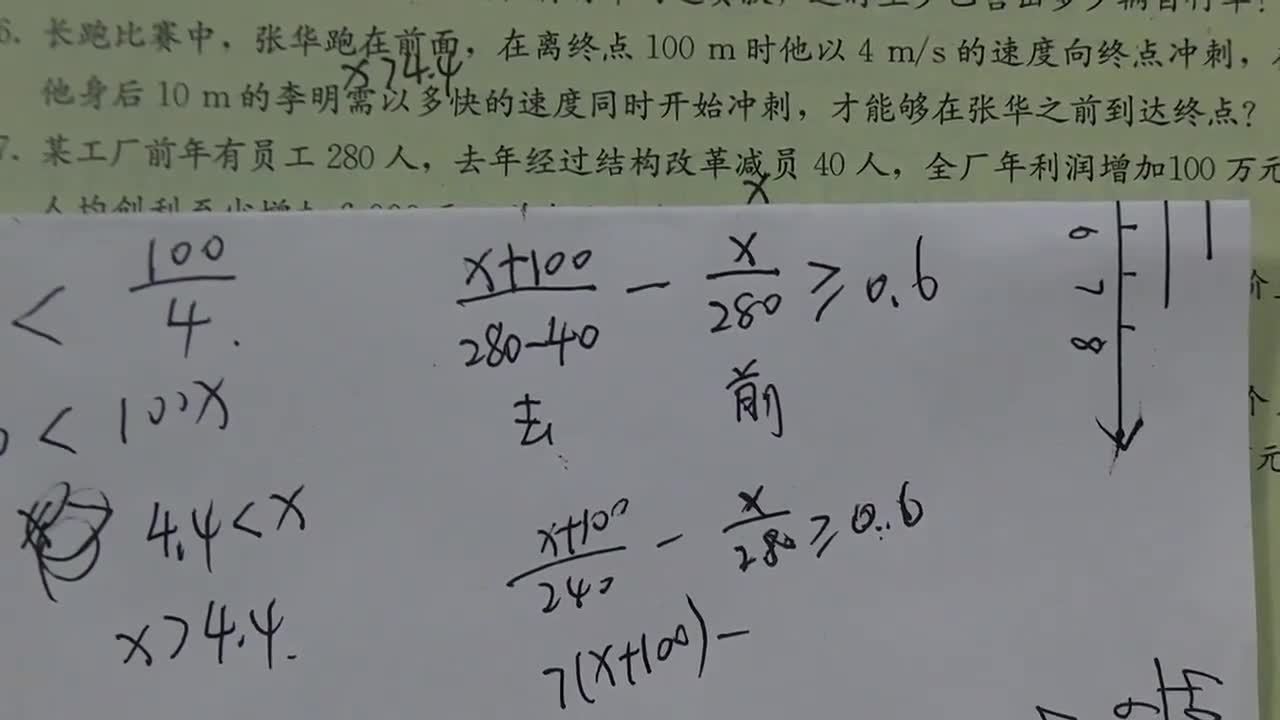 6. 长跑比赛中，张华跑在前面，在离终点 100 m 时他以 4 m/s 的速度向终点冲刺，
x>4.4
他身后 10 m 的李明需以多快的速度同时开始冲刺，才能够在张华之前到达终点？
7. 某工厂前年有员工 280 人，去年经过结构改革减员 40 人，全厂年利润增加100 万元
x
< 100/4.
(x+100)/(280-40) - x/280 ≥ 0.6
去 前
< 100x
4.4<x
(x+100)/240 - x/280 ≥ 0.6
x>4.4.
7(x+100)-
6
7
8
元